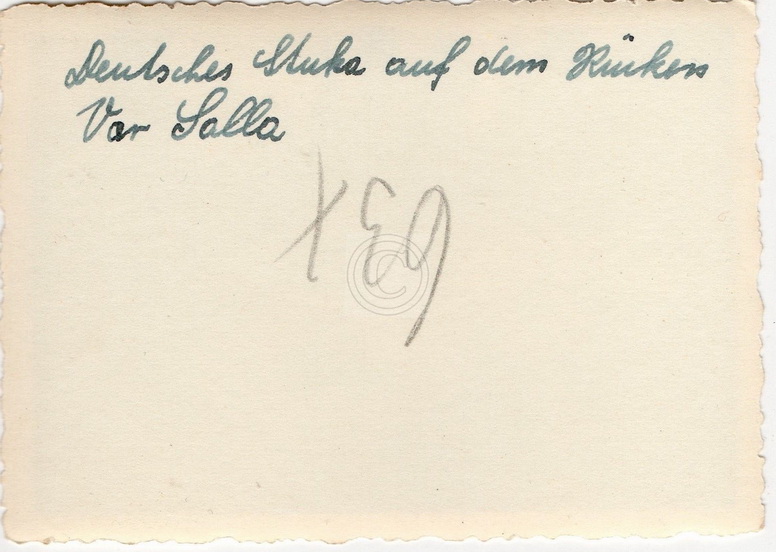 Deutsches Stuka auf dem Rücken
Vor Salla